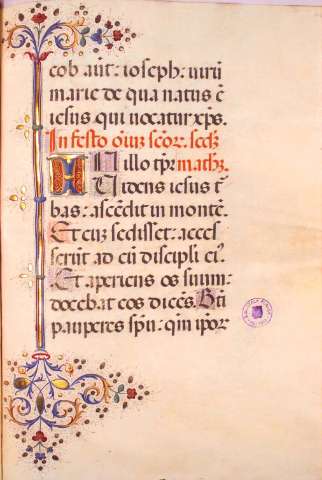 cob aut̄: ioseph: uirū
marie de qua natus ē
iesus qui uocatur xp̄s.
In festo oīuʒ sc̄oꝝ. secd̄ʒ
IN illo tp̄r matheʒ.
Uidens iesus t̄
bas: ascēdit in montē.
Et cuʒ sedisset: acces
serūt ad eū discipli eī.
Et aperiens os suum:
docebat eos dicēs. Bt̄i
pauperes sp̄u: qm̄ ip̄oꝝ